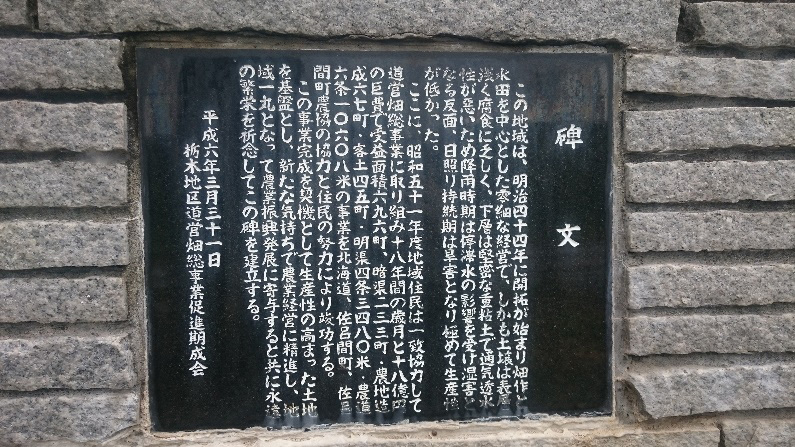 碑文
この地域は、明治四十四年に開拓が始まり畑作と
水田を中心とした零細な経営で、しかも土壌は表層
浅く腐食に乏しく、下層は堅密な重粘土で通気透水
性が悪いため降雨時期は停滞水の影響を受け湿害と
なる反面、日照り持続期は旱害となり極めて生産性
が低かった。
ここに、昭和五十一年度地域住民は一致協力して
道営畑総事業に取り組み十八年間の歳月と十八億円
の巨費で受益面積六九六町、暗渠二三三町・農地造
成六七町・客土四五町・明渠四条三四八〇米、農道
六条一〇六〇八米の事業を北海道、佐呂間町、佐呂
間町農協の協力と住民の努力により竣功する。
この事業完成を契機として生産性の高まった土地
を基盤とし、新たな気持ちで農業経営に精進し、地
域一丸となって農業振興発展に寄与すると共に永遠
の繁栄を祈念してこの碑を建立する。
平成六年三月三十一日
栃木地区道営畑総事業促進期成会